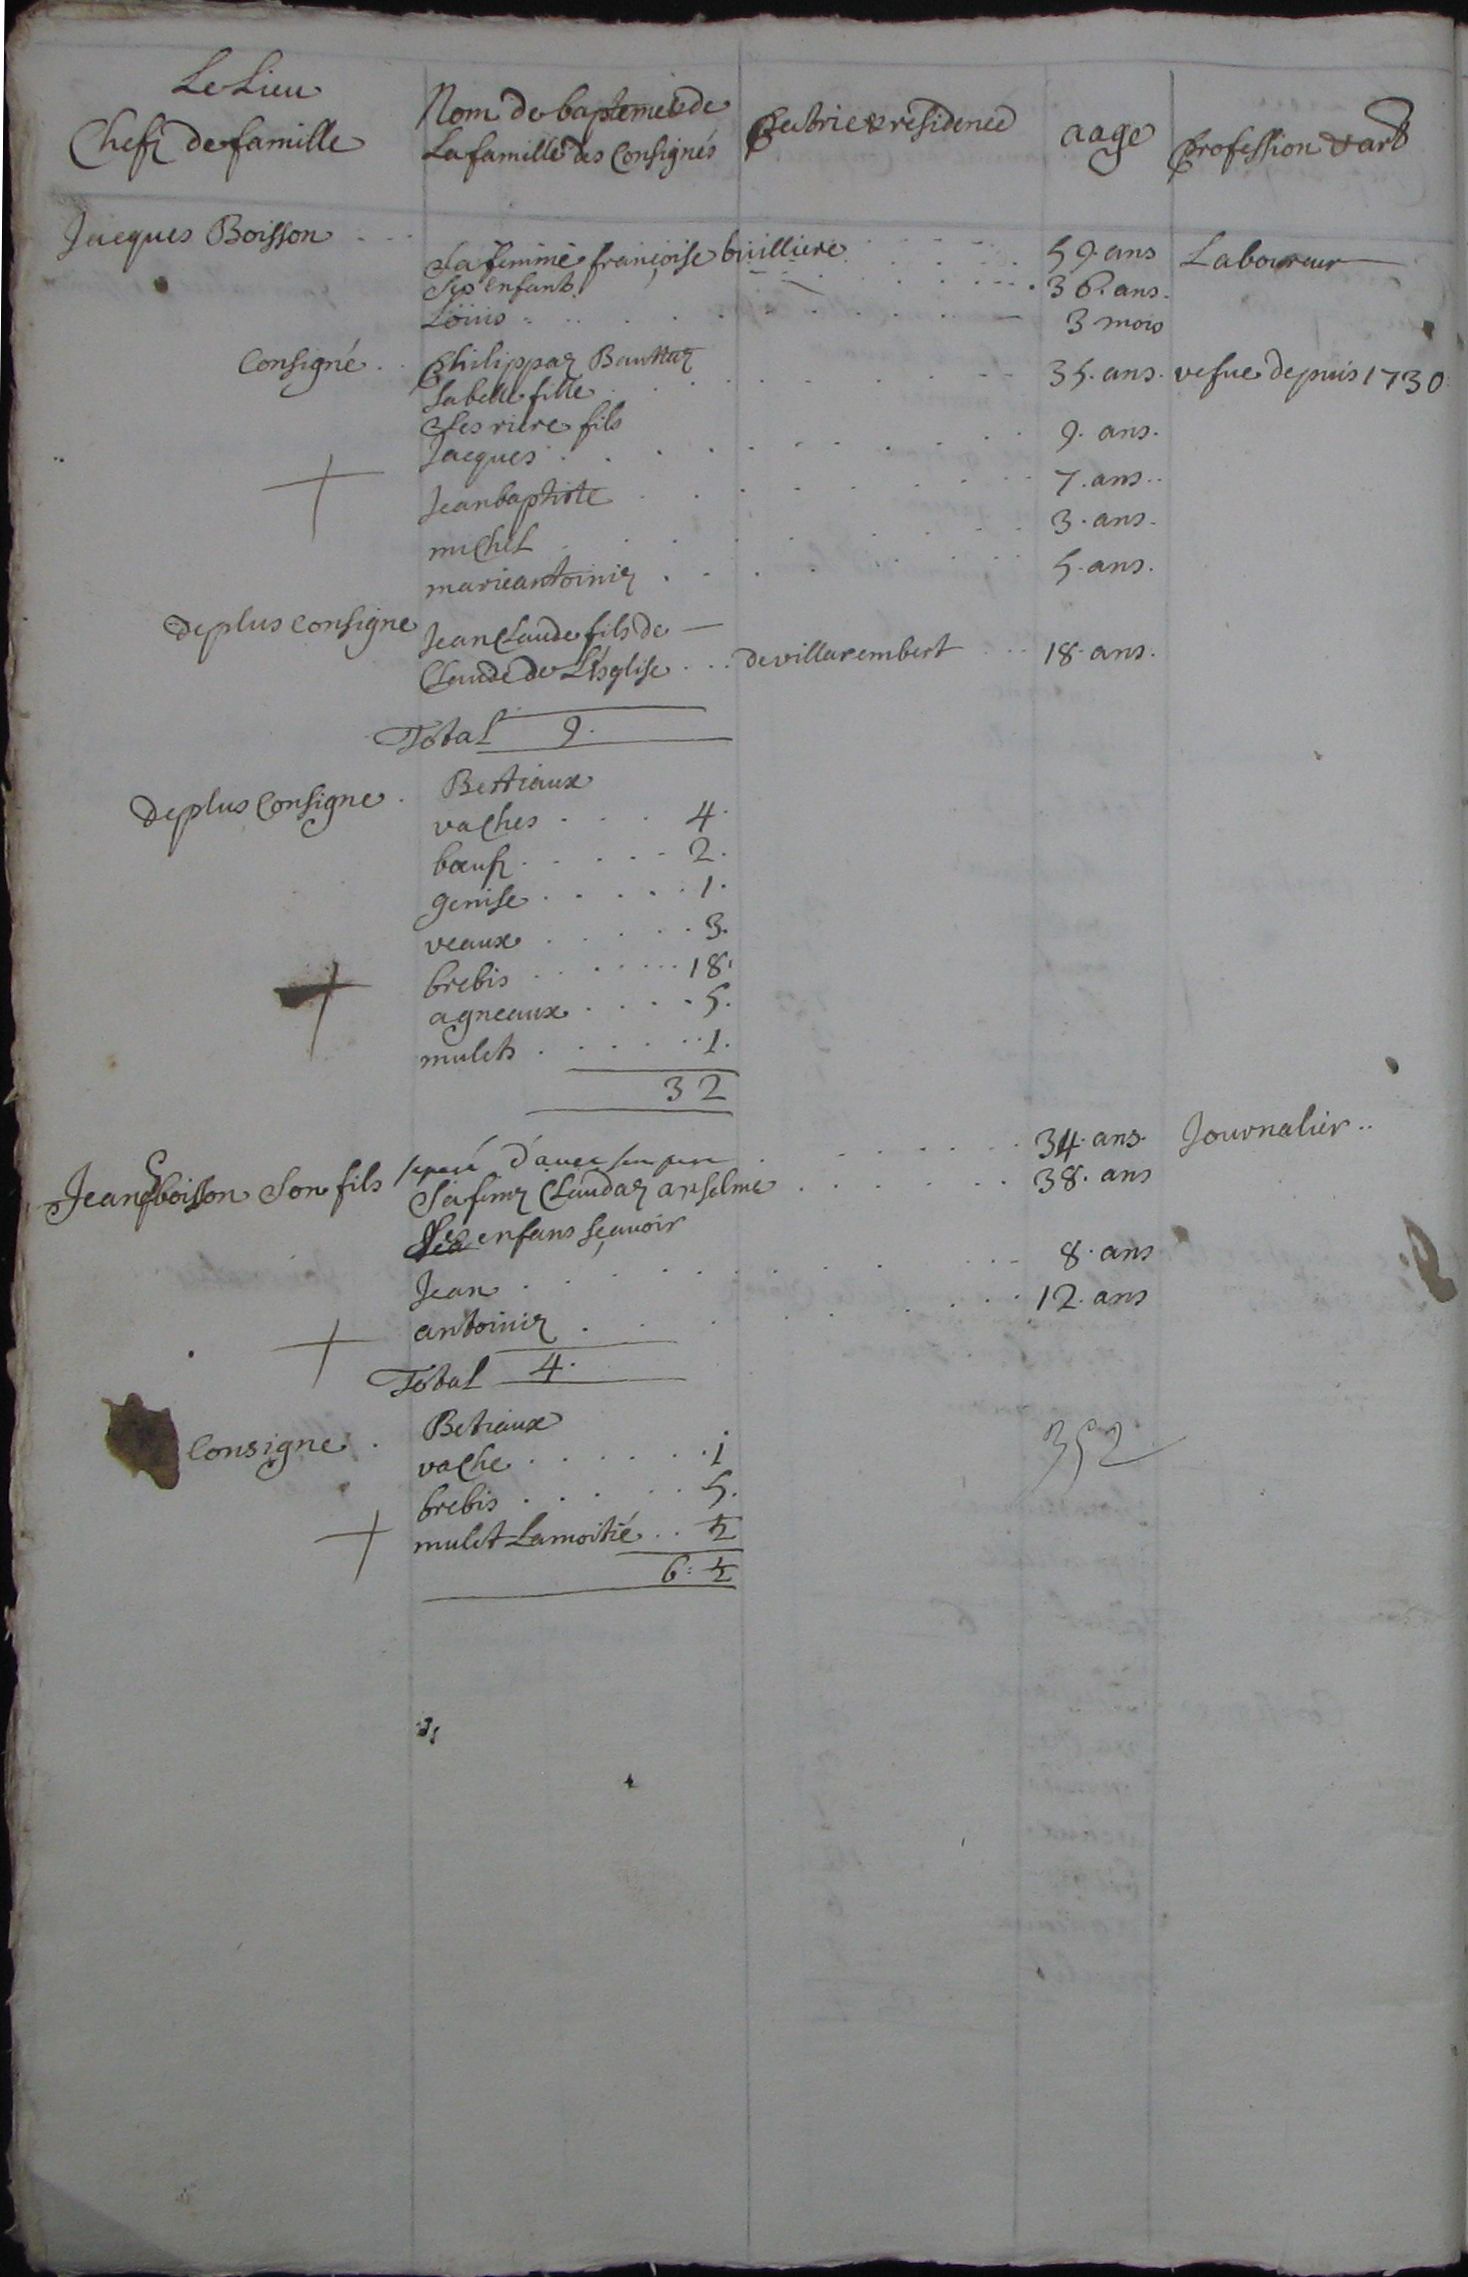 Le Lieu
Chefz de famille
Nom de bapteme & de
La famille des Consignés
Patrie & residence
aage
Profession & art
Jacques Boisson 59. ans Laboureur
Sa femme françoise builliere 36. ans.
Ses enfants
Loüis 3 mois
Consigné. Philippaz
Sa belle fille 35. ans. vefue depuis 1730
Ses riere fils
Jacques 9. ans.
Jean baptiste 7. ans.
michel 3. ans.
marie antoiniz 5. ans.
De plus consigne Jean Claude fils de
Claude de L'Eglise de villarembert 18. ans.
Total 9.
De plus Consigne. Bestiaux
vaches 4.
bœufz 2.
genise 1.
veaux 3.
brebis 18.
agneaux 5.
mulets 1.
32
Jean boisson Son fils separé d'avec son pere 34. ans. Journalier
Sa femz Claudaz anselme 38. ans
Ses enfans sçauoir
Jean 8. ans
antoiniz 12. ans
Total 4.
Consigne. Betiaux
vache 1
brebis 5.
mulet La moitié 1/2
6: 1/2
352